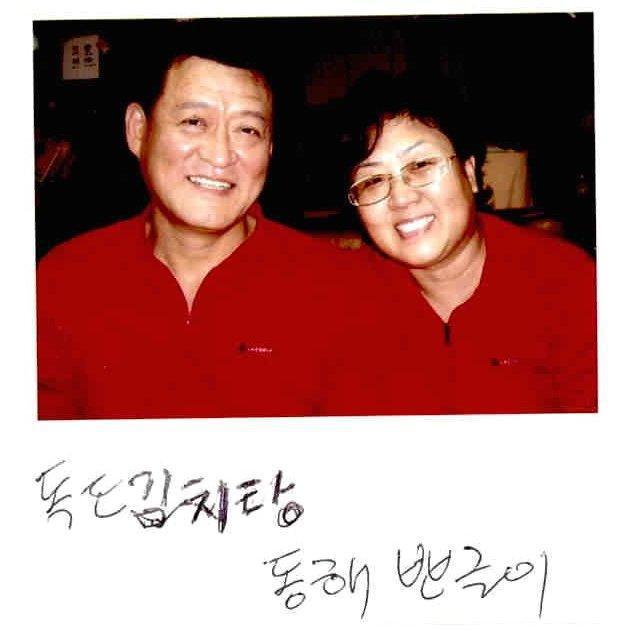 독도김치탕
동해 뺀글이